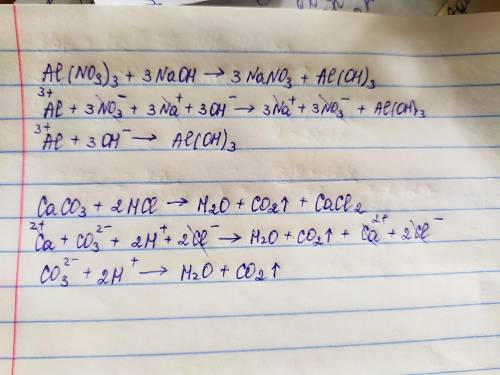 Al(NO₃)₃ + 3NaOH → 3NaNO₃ + Al(OH)₃
Al³⁺ + 3NO₃⁻ + 3Na⁺ + 3OH⁻ → 3Na⁺ + 3NO₃⁻ + Al(OH)₃
Al³⁺ + 3OH⁻ → Al(OH)₃
CaCO₃ + 2HCl → H₂O + CO₂↑ + CaCl₂
Ca²⁺ + CO₃²⁻ + 2H⁺ + 2Cl⁻ → H₂O + CO₂↑ + Ca²⁺ + 2Cl⁻
CO₃²⁻ + 2H⁺ → H₂O + CO₂↑